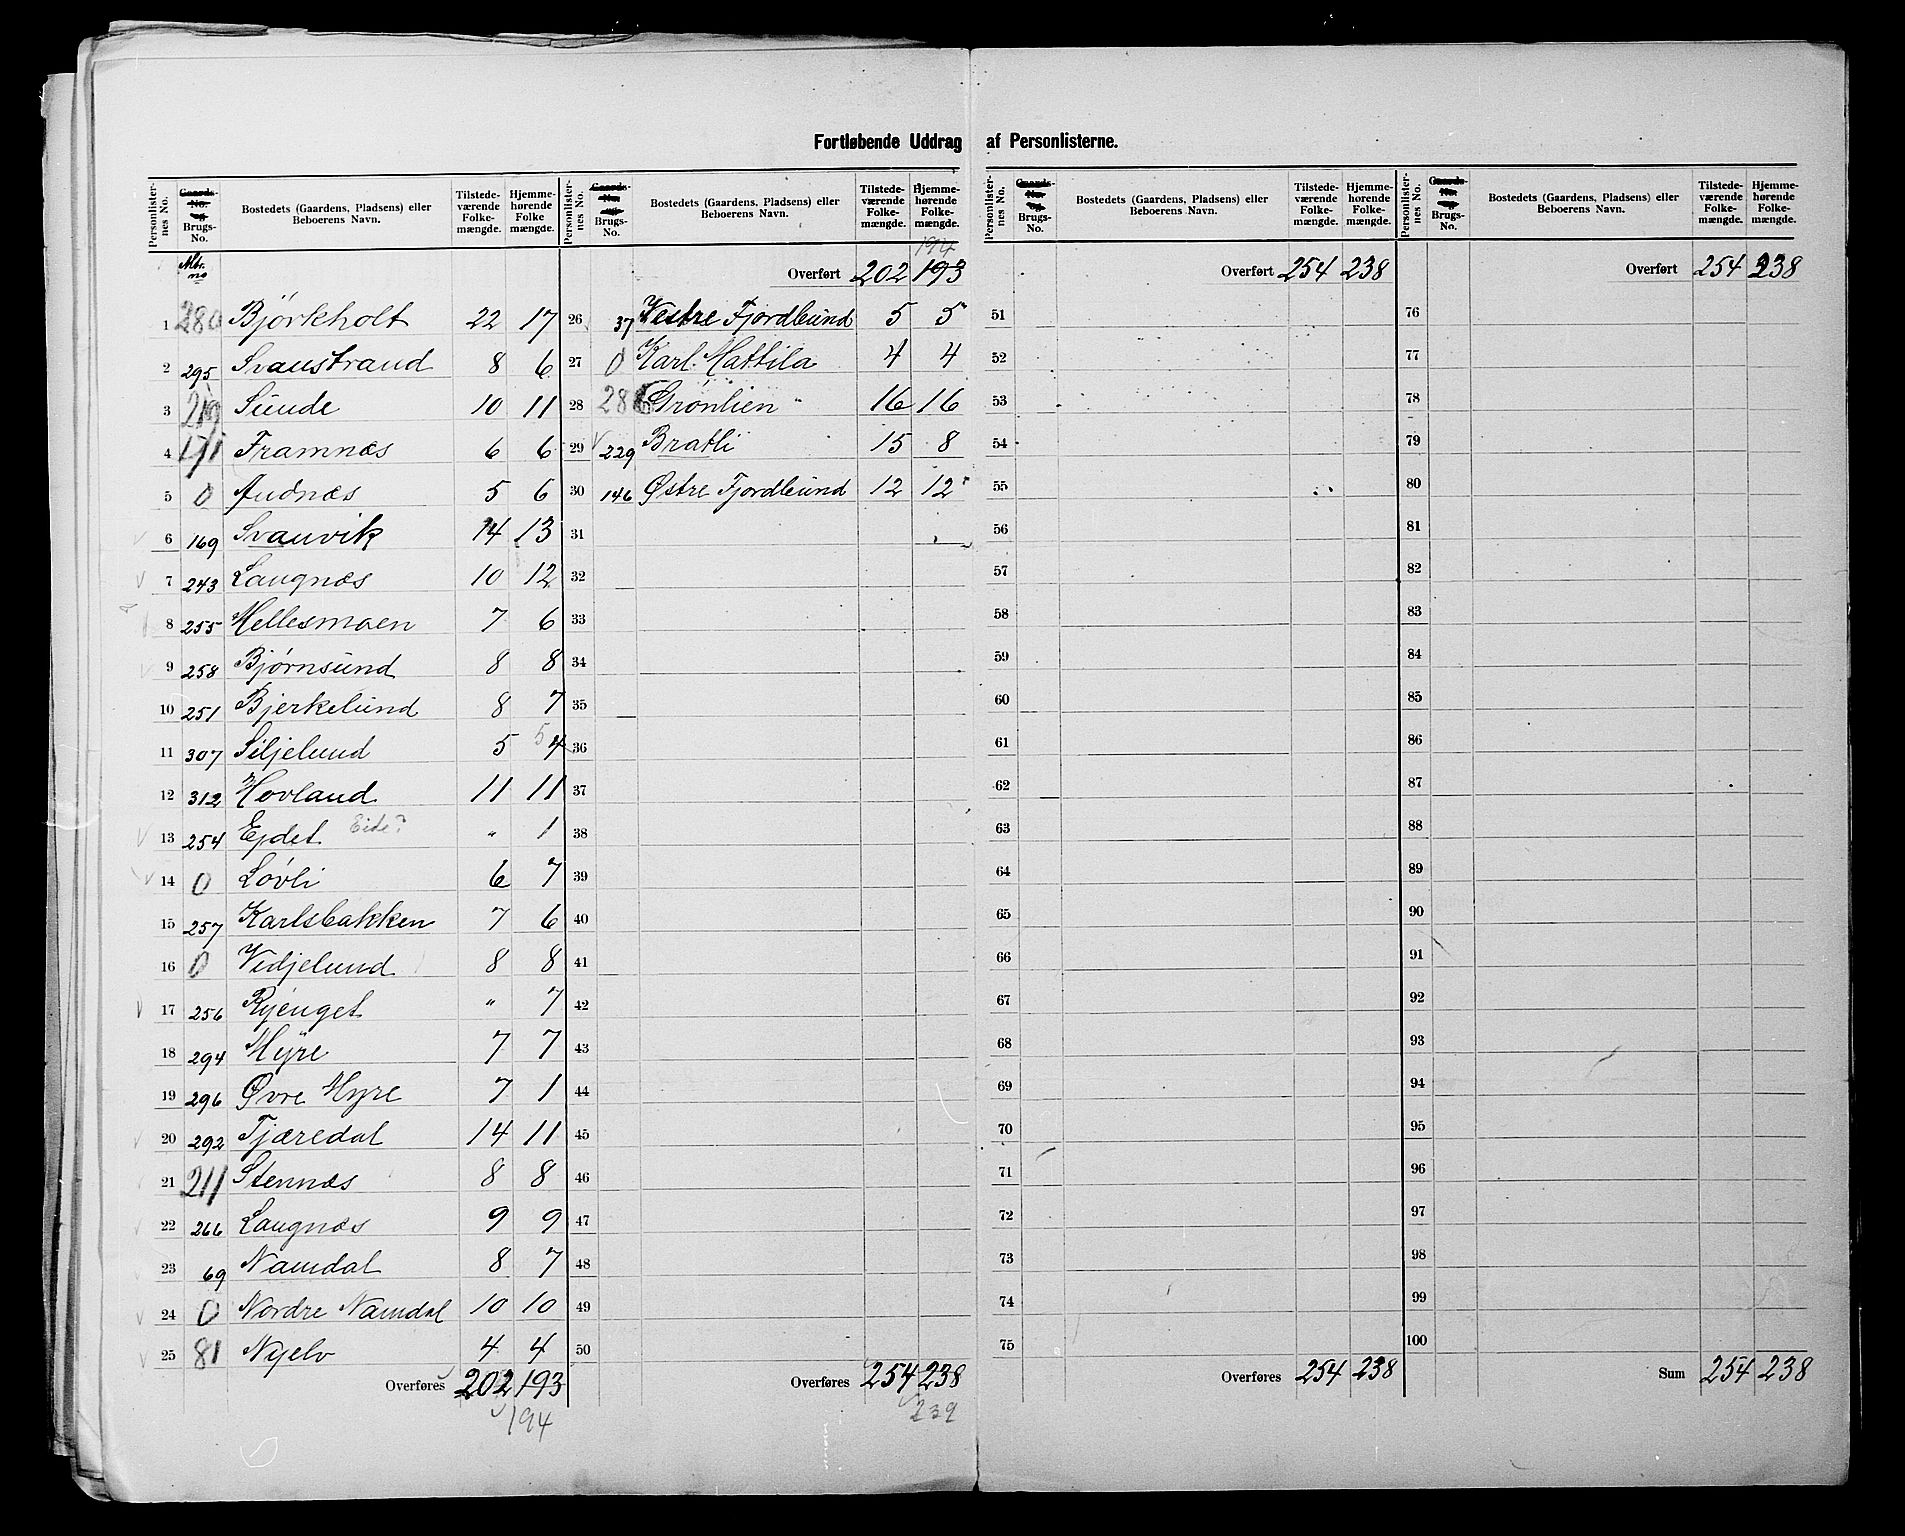 Fortløbende Uddrag af Personlisterne.
Personlister-nes No. Gaards-No. og Brugs-No. Bostedets (Gaardens, Pladsens) eller Beboerens Navn. Tilstede-værende Folke-mængde. Hjemme-hørende Folke mængde.
Mtr. no
1 280 Bjørkholt 22 17
2 295 Svanstrand 8 6
3 219 Sunde 10 11
4 171 Framnæs 6 6
5 0 Audnæs 5 6
6 169 Svanvik 14 13
7 243 Langnæs 10 12
8 255 Hellesmoen 7 6
9 258 Bjørnsund 8 8
10 251 Bjerkelund 8 7
11 307 Siljelund 5 5 4
12 312 Hovland 11 11
13 254 Ejdet Eide? " 1
14 0 Løvli 6 7
15 257 Karlsbakken 7 6
16 0 Vidjelund 8 8
17 256 Ryenget " 7
18 294 Myre 7 7
19 296 Øvre Myre 7 1
20 292 Tjæredal 14 11
21 211 Stennæs 8 8
22 266 Langnæs 9 9
23 69 Namdal 8 7
24 0 Nordre Namdal 10 10
25 81 Nyelv 4 4
Overføres 202 193
194
Personlister-nes No. Gaards-No. og Brugs-No. Bostedets (Gaardens, Pladsens) eller Beboerens Navn. Tilstede-værende Folke-mængde. Hjemme-hørende Folke-mængde.
194
Overført 202 193
26 37 Vestre Fjordlund 5 5
27 0 Karl Mattila 4 4
28 286 Grønlien " 16 16
29 229 Bratli 15 8
30 146 Østre Fjordlund 12 12
31
32
33
34
35
36
37
38
39
40
41
42
43
44
45
46
47
48
49
50
Overføres 254 238
239
Personlister-nes No. Gaards-No. og Brugs-No. Bostedets (Gaardens, Pladsens) eller Beboerens Navn. Tilstede-værende Folke-mængde. Hjemme-hørende Folke-mængde.
Overført 254 238
51
52
53
54
55
56
57
58
59
60
61
62
63
64
65
66
67
68
69
70
71
72
73
74
75
Overføres 254 238
Personlister-nes No. Gaards-No. og Brugs-No. Bostedets (Gaardens, Pladsens) eller Beboerens Navn. Tilstede-værende Folke-mængde. Hjemme-hørende Folke-mængde.
Overført 254 238
76
77
78
79
80
81
82
83
84
85
86
87
88
89
90
91
92
93
94
95
96
97
98
99
100
Sum 254 238